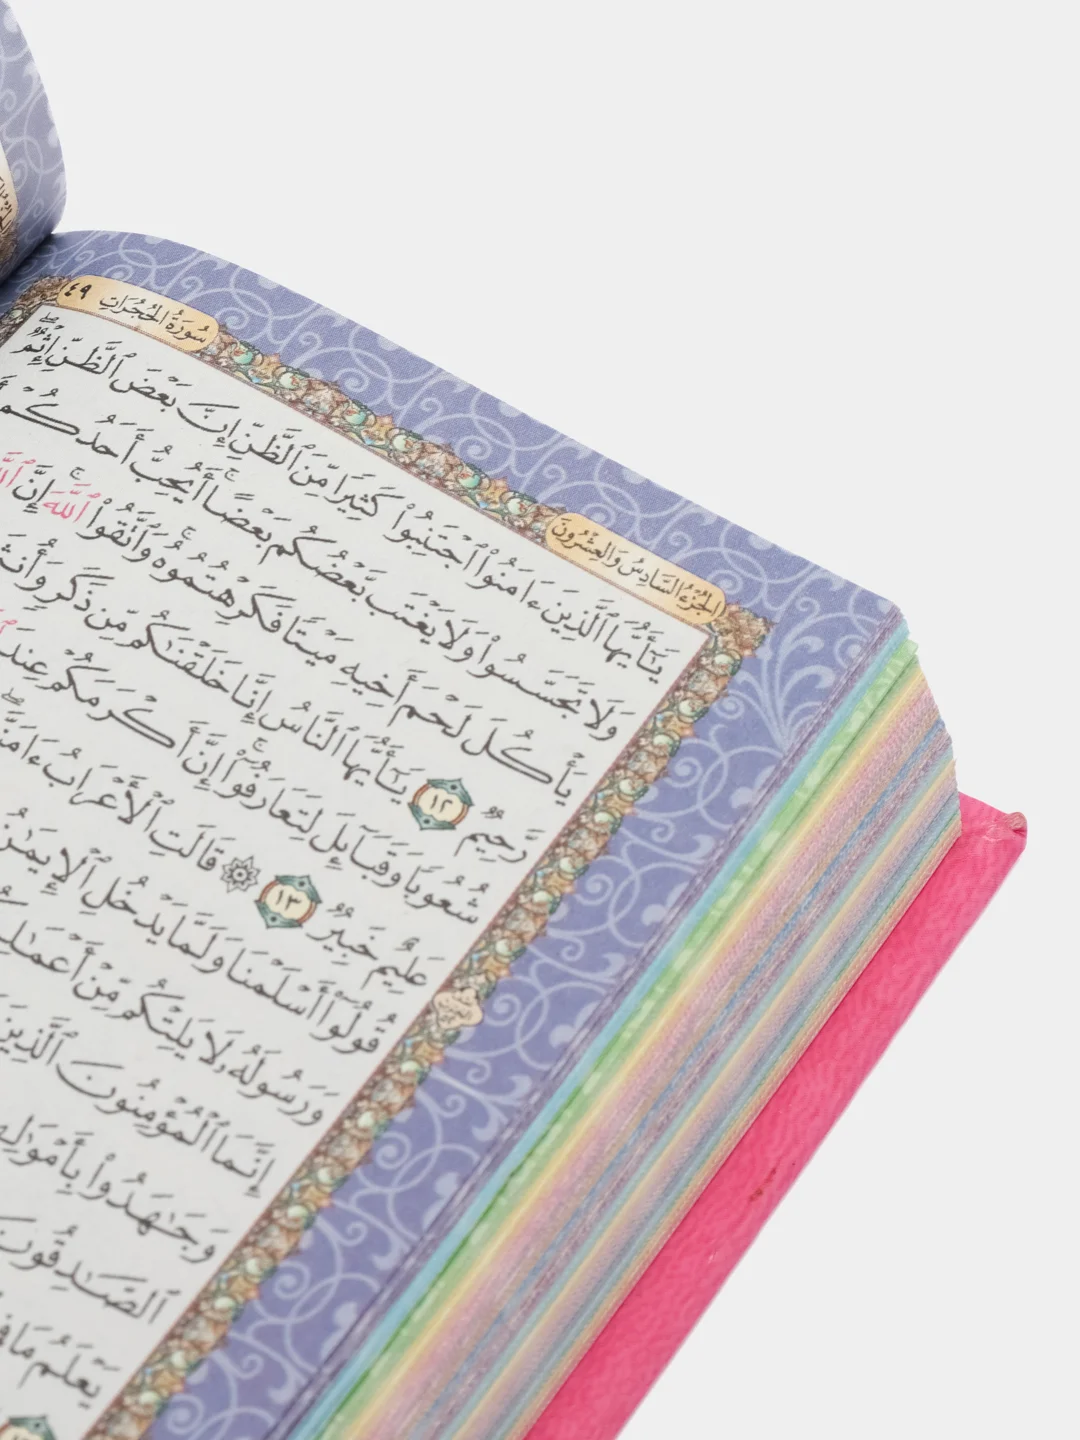 سُورَةُ الحُجُرَاتِ ٤٩
الجُزْءُ السَّادِسُ وَالعِشْرُونَ
يَٰٓأَيُّهَا ٱلَّذِينَ ءَامَنُوا۟ ٱجْتَنِبُوا۟ كَثِيرًا مِّنَ ٱلظَّنِّ إِنَّ بَعْضَ ٱلظَّنِّ إِثْمٌ ۖ
وَلَا تَجَسَّسُوا۟ وَلَا يَغْتَب بَّعْضُكُم بَعْضًا ۚ أَيُحِبُّ أَحَدُكُمْ
يَأْكُلَ لَحْمَ أَخِيهِ مَيْتًا فَكَرِهْتُمُوهُ ۚ وَٱتَّقُوا۟ ٱللَّهَ ۚ إِنَّ
رَّحِيمٌ ١٢ يَٰٓأَيُّهَا ٱلنَّاسُ إِنَّا خَلَقْنَٰكُم مِّن ذَكَرٍ
شُعُوبًا وَقَبَآئِلَ لِتَعَارَفُوٓا۟ ۚ إِنَّ أَكْرَمَكُمْ عِندَ
عَلِيمٌ خَبِيرٌ ١٣ ۞ قَالَتِ ٱلْأَعْرَابُ
قُولُوٓا۟ أَسْلَمْنَا وَلَمَّا يَدْخُلِ
وَرَسُولَهُۥ لَا يَلِتْكُم مِّنْ
إِنَّمَا ٱلْمُؤْمِنُونَ ٱلَّذِينَ
وَجَٰهَدُوا۟
ٱلصَّٰدِقُونَ
يَعْلَمُ مَا